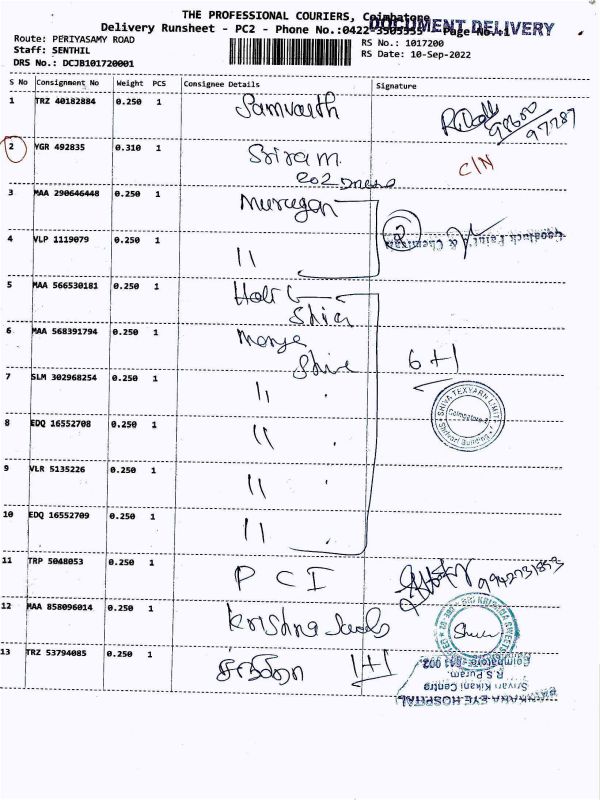 THE PROFESSIONAL COURIERS, Coimbatore
DOCUMENT DELIVERY
Delivery Runsheet - PC2 - Phone No.:0422-3503555 Page No.:1
Route: PERIYASAMY ROAD
RS No.: 1017200
Staff: SENTHIL
RS Date: 10-Sep-2022
DRS No.: DCJB101720001
S No Consignment No Weight PCS Consignee Details Signature
1 TRZ 40182884 0.250 1
98600
97787
2 YGR 492835 0.310 1 Sriram C/N
3 MAA 290646448 0.250 1 Murugan
2
4 VLP 1119079 0.250 1 11
5 MAA 566530181 0.250 1
6 MAA 568391794 0.250 1
6+1
7 SLM 302968254 0.250 1 11
SHIVA TEXYARN LIMIT
Coimbatore
Shivari Building
8 EDQ 16552708 0.250 1 11
9 VLR 5135226 0.250 1 11
10 EDQ 16552709 0.250 1 11
11 TRP 5048053 0.250 1 PCI
12 MAA 858096014 0.250 1 Krishna
SRI KRISHNA SWEETS
13 TRZ 53794085 0.250 1 1+1
Coimbatore - 641 002
R.S Puram
Srivari Kikani Centre
SANKARA EYE HOSPITAL